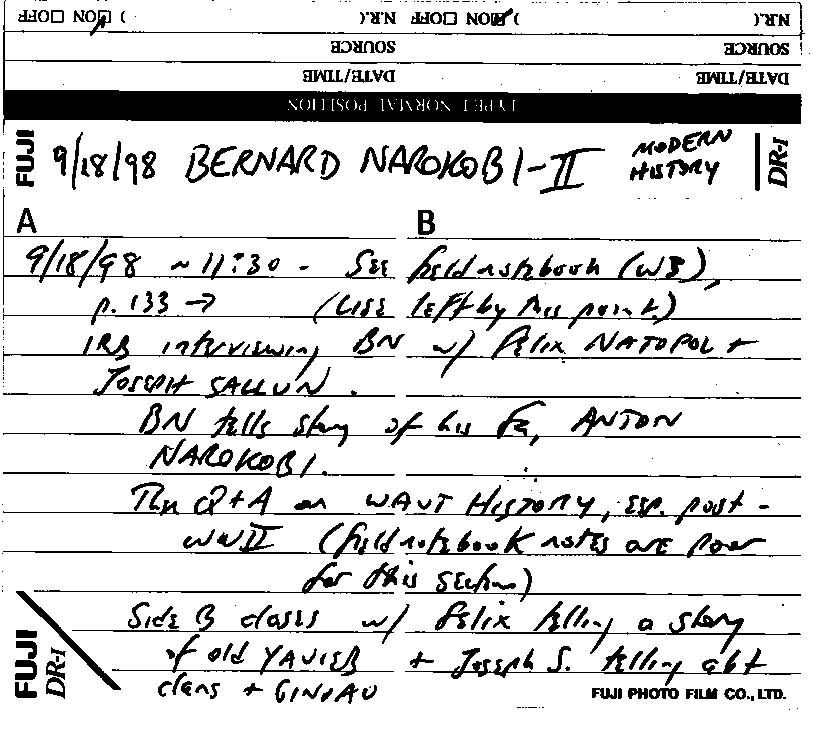 ) ☑ON ☐OFF N.R.(
) ☑ON ☐OFF N.R.(
SOURCE SOURCE
DATE/TIME DATE/TIME
TYPE I NORMAL POSITION
FUJI 9/18/98 BERNARD NAROKOBI-II MODERN HISTORY DR-I
A B
9/18/98 ~11:30 - SEE field notebook (WB),
p. 133 → (LISE left by this point.)
IRB interviewing BN w/ Felix NATOPOL +
JOSEPH SALLUN.
BN tells story of his Fa, ANTON
NAROKOBI.
Then Q+A on WAUT HISTORY, esp. post-
WWII (field notebook notes are poor
for this section)
Side B closes w/ Felix telling a story
of old YAUIEB + Joseph S. telling abt
clans + GINYAU
FUJI DR-I
FUJI PHOTO FILM CO., LTD.